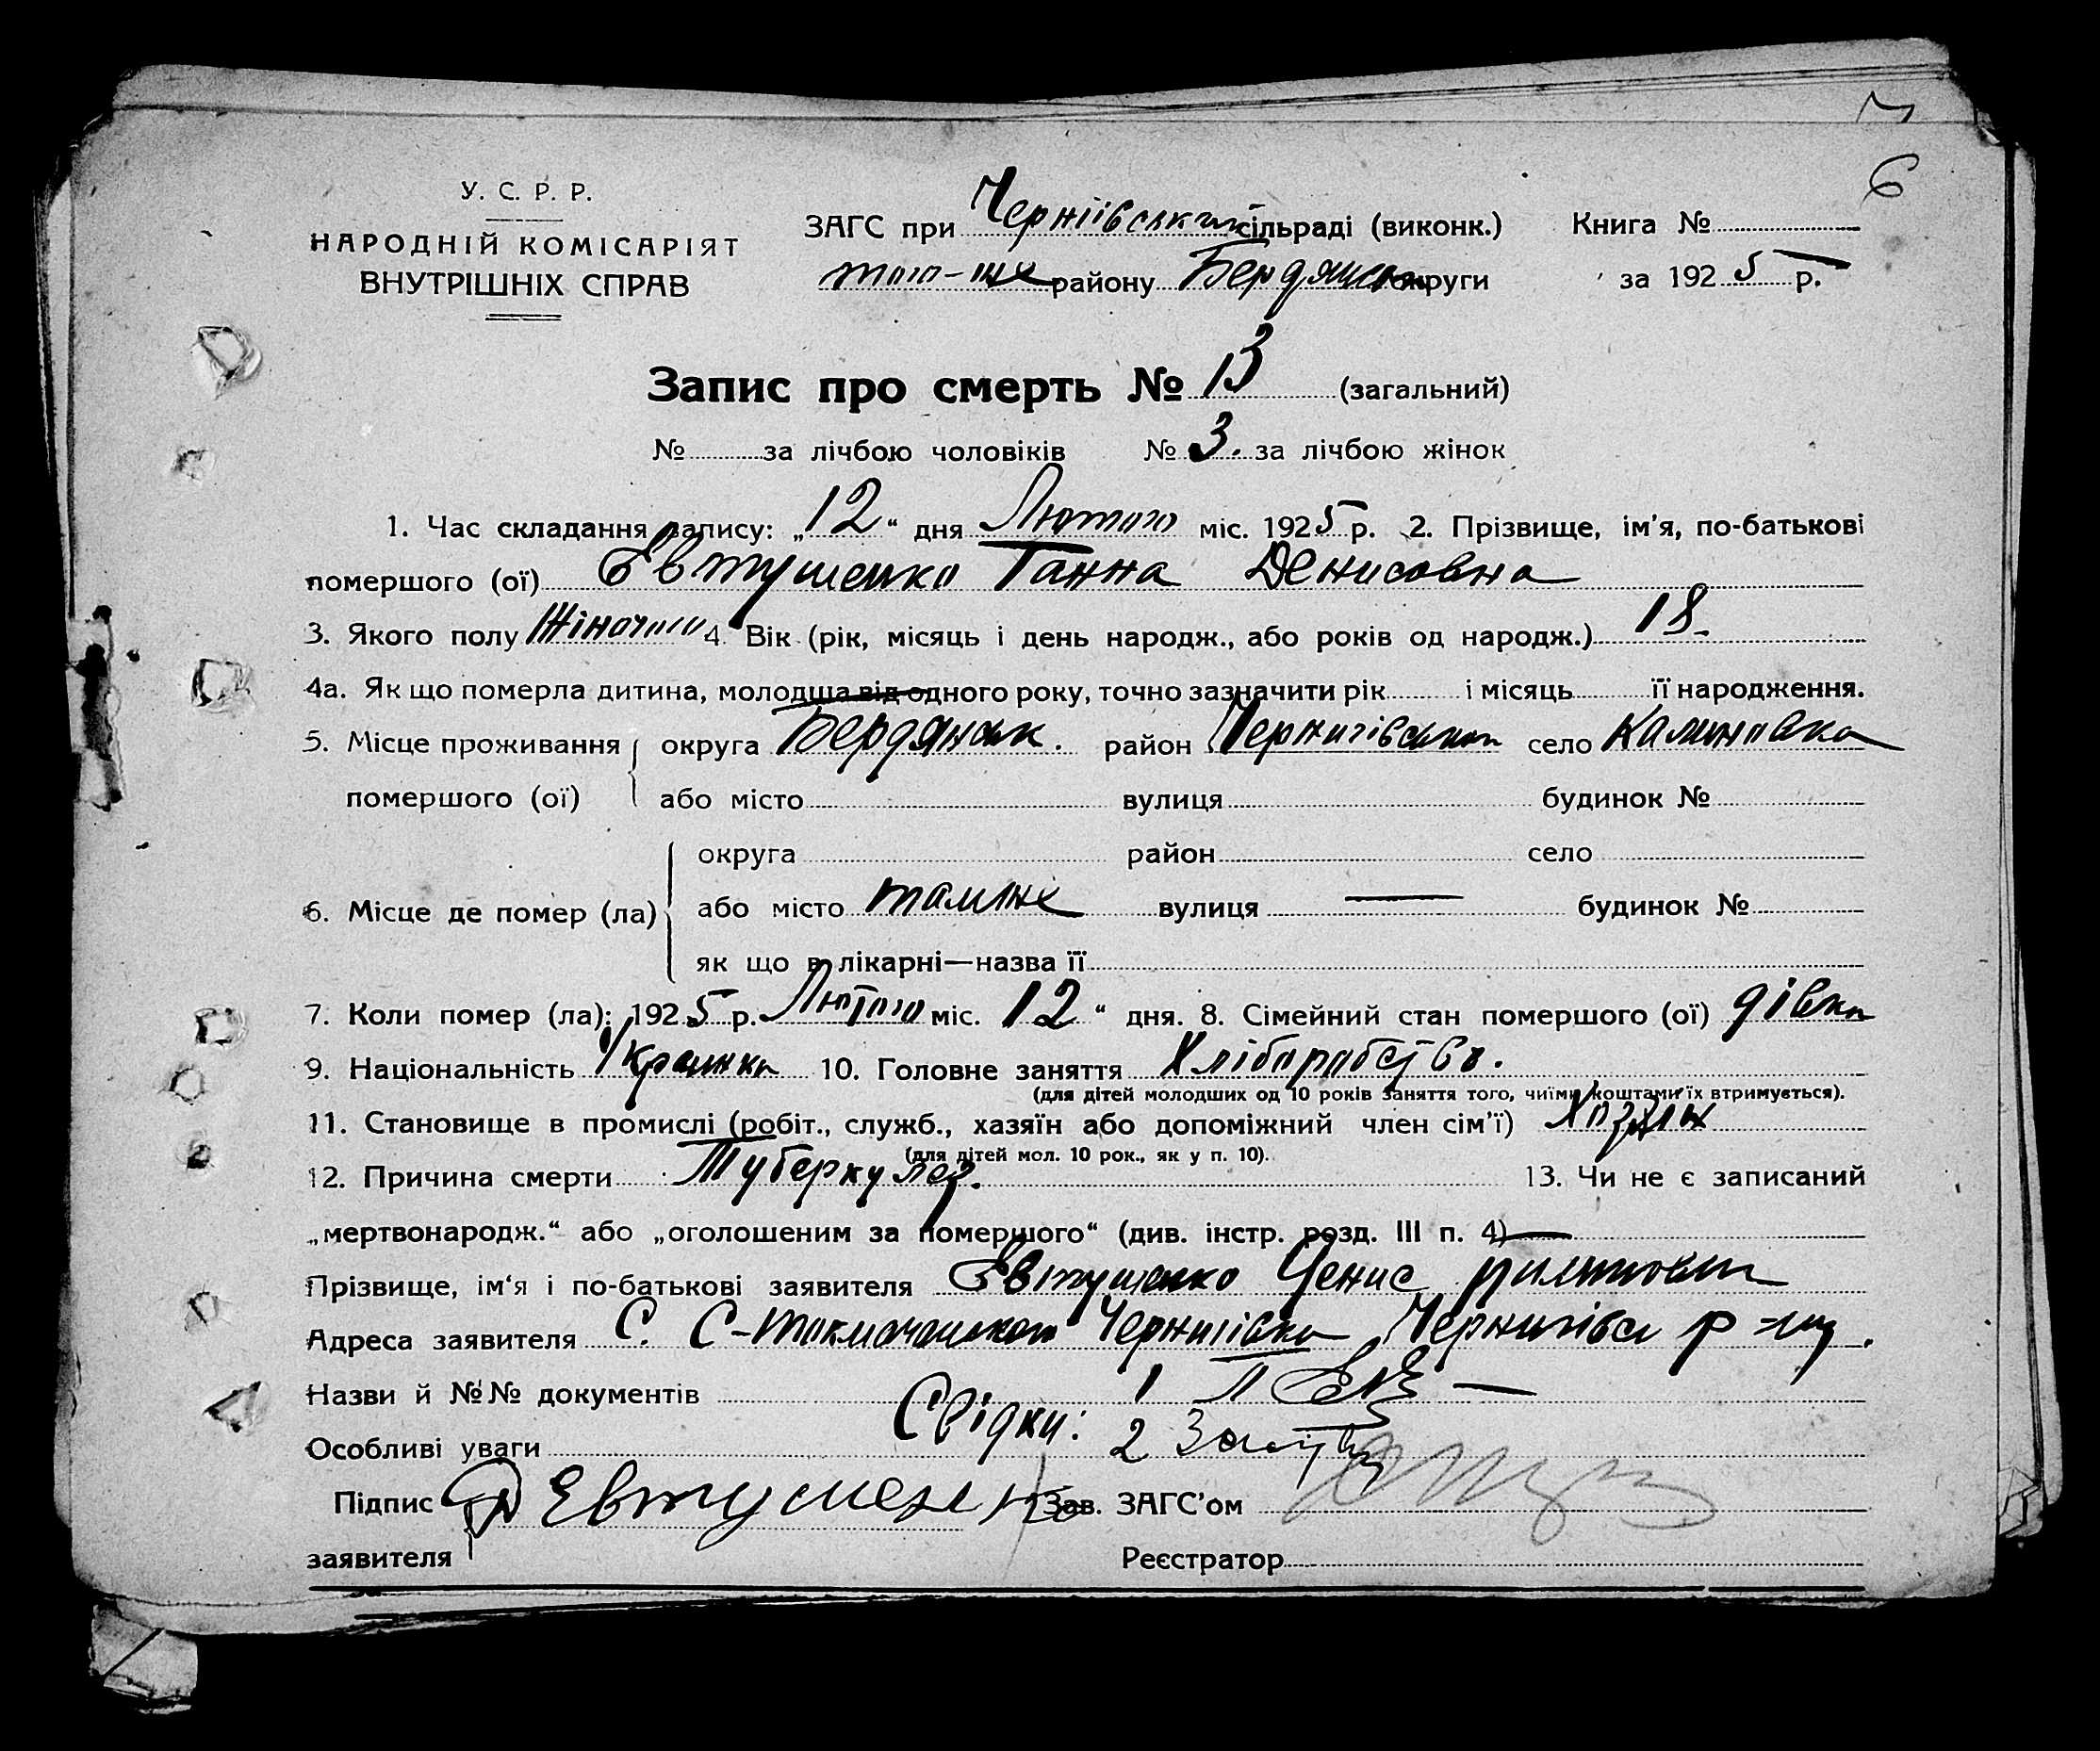 7
6
У. С. Р. Р.
НАРОДНІЙ КОМІСАРІЯТ
ВНУТРІШНІХ СПРАВ
ЗАГС при Чернігівській сільраді (виконк.)
того-же району Бердянськ округи
Книга №
за 1925 р.
Запис про смерть № 13 (загальний)
№ за лічбою чоловіків № 3. за лічбою жінок
1. Час складання запису: „12“ дня Лютого міс. 1925 р. 2. Прізвище, ім'я, по-батькові
помершого (ої) Євтушенко Ганна Денисовна
3. Якого полу Жіночого 4. Вік (рік, місяць і день народж., або років од народж.) 18.
4а. Як що померла дитина, молодша від одного року, точно зазначити рік і місяць її народження.
5. Місце проживання округа Бердянськ. район Чернигівський село Калиновка
помершого (ої) або місто вулиця будинок №
округа район село
6. Місце де помер (ла) або місто тамже вулиця — будинок №
як що в лікарні—назва її
7. Коли помер (ла): 1925 р. Лютого міс. 12“ дня. 8. Сімейний стан помершого (ої) дівка
9. Національність Українка 10. Головне заняття Хліборобств.
(для дітей молодших од 10 років заняття того, чиїми коштами їх втримується).
11. Становище в промислі (робіт., служб., хазяїн або допоміжний член сім'ї) Хозяін
(для дітей мол. 10 рок., як у п. 10).
12. Причина смерти Туберкулез. 13. Чи не є записаний
„мертвонародж.“ або „оголошеним за помершого“ (див. інстр. розд. III п. 4) —
Прізвище, ім'я і по-батькові заявителя Євтушенко Денис
Адреса заявителя С. Чернигівка Чернигівськ р-ну.
Назви й №№ документів 1
Особливі уваги Свідки: 2
Підпис Д Евтушенко Зав. ЗАГС'ом
заявителя Реєстратор